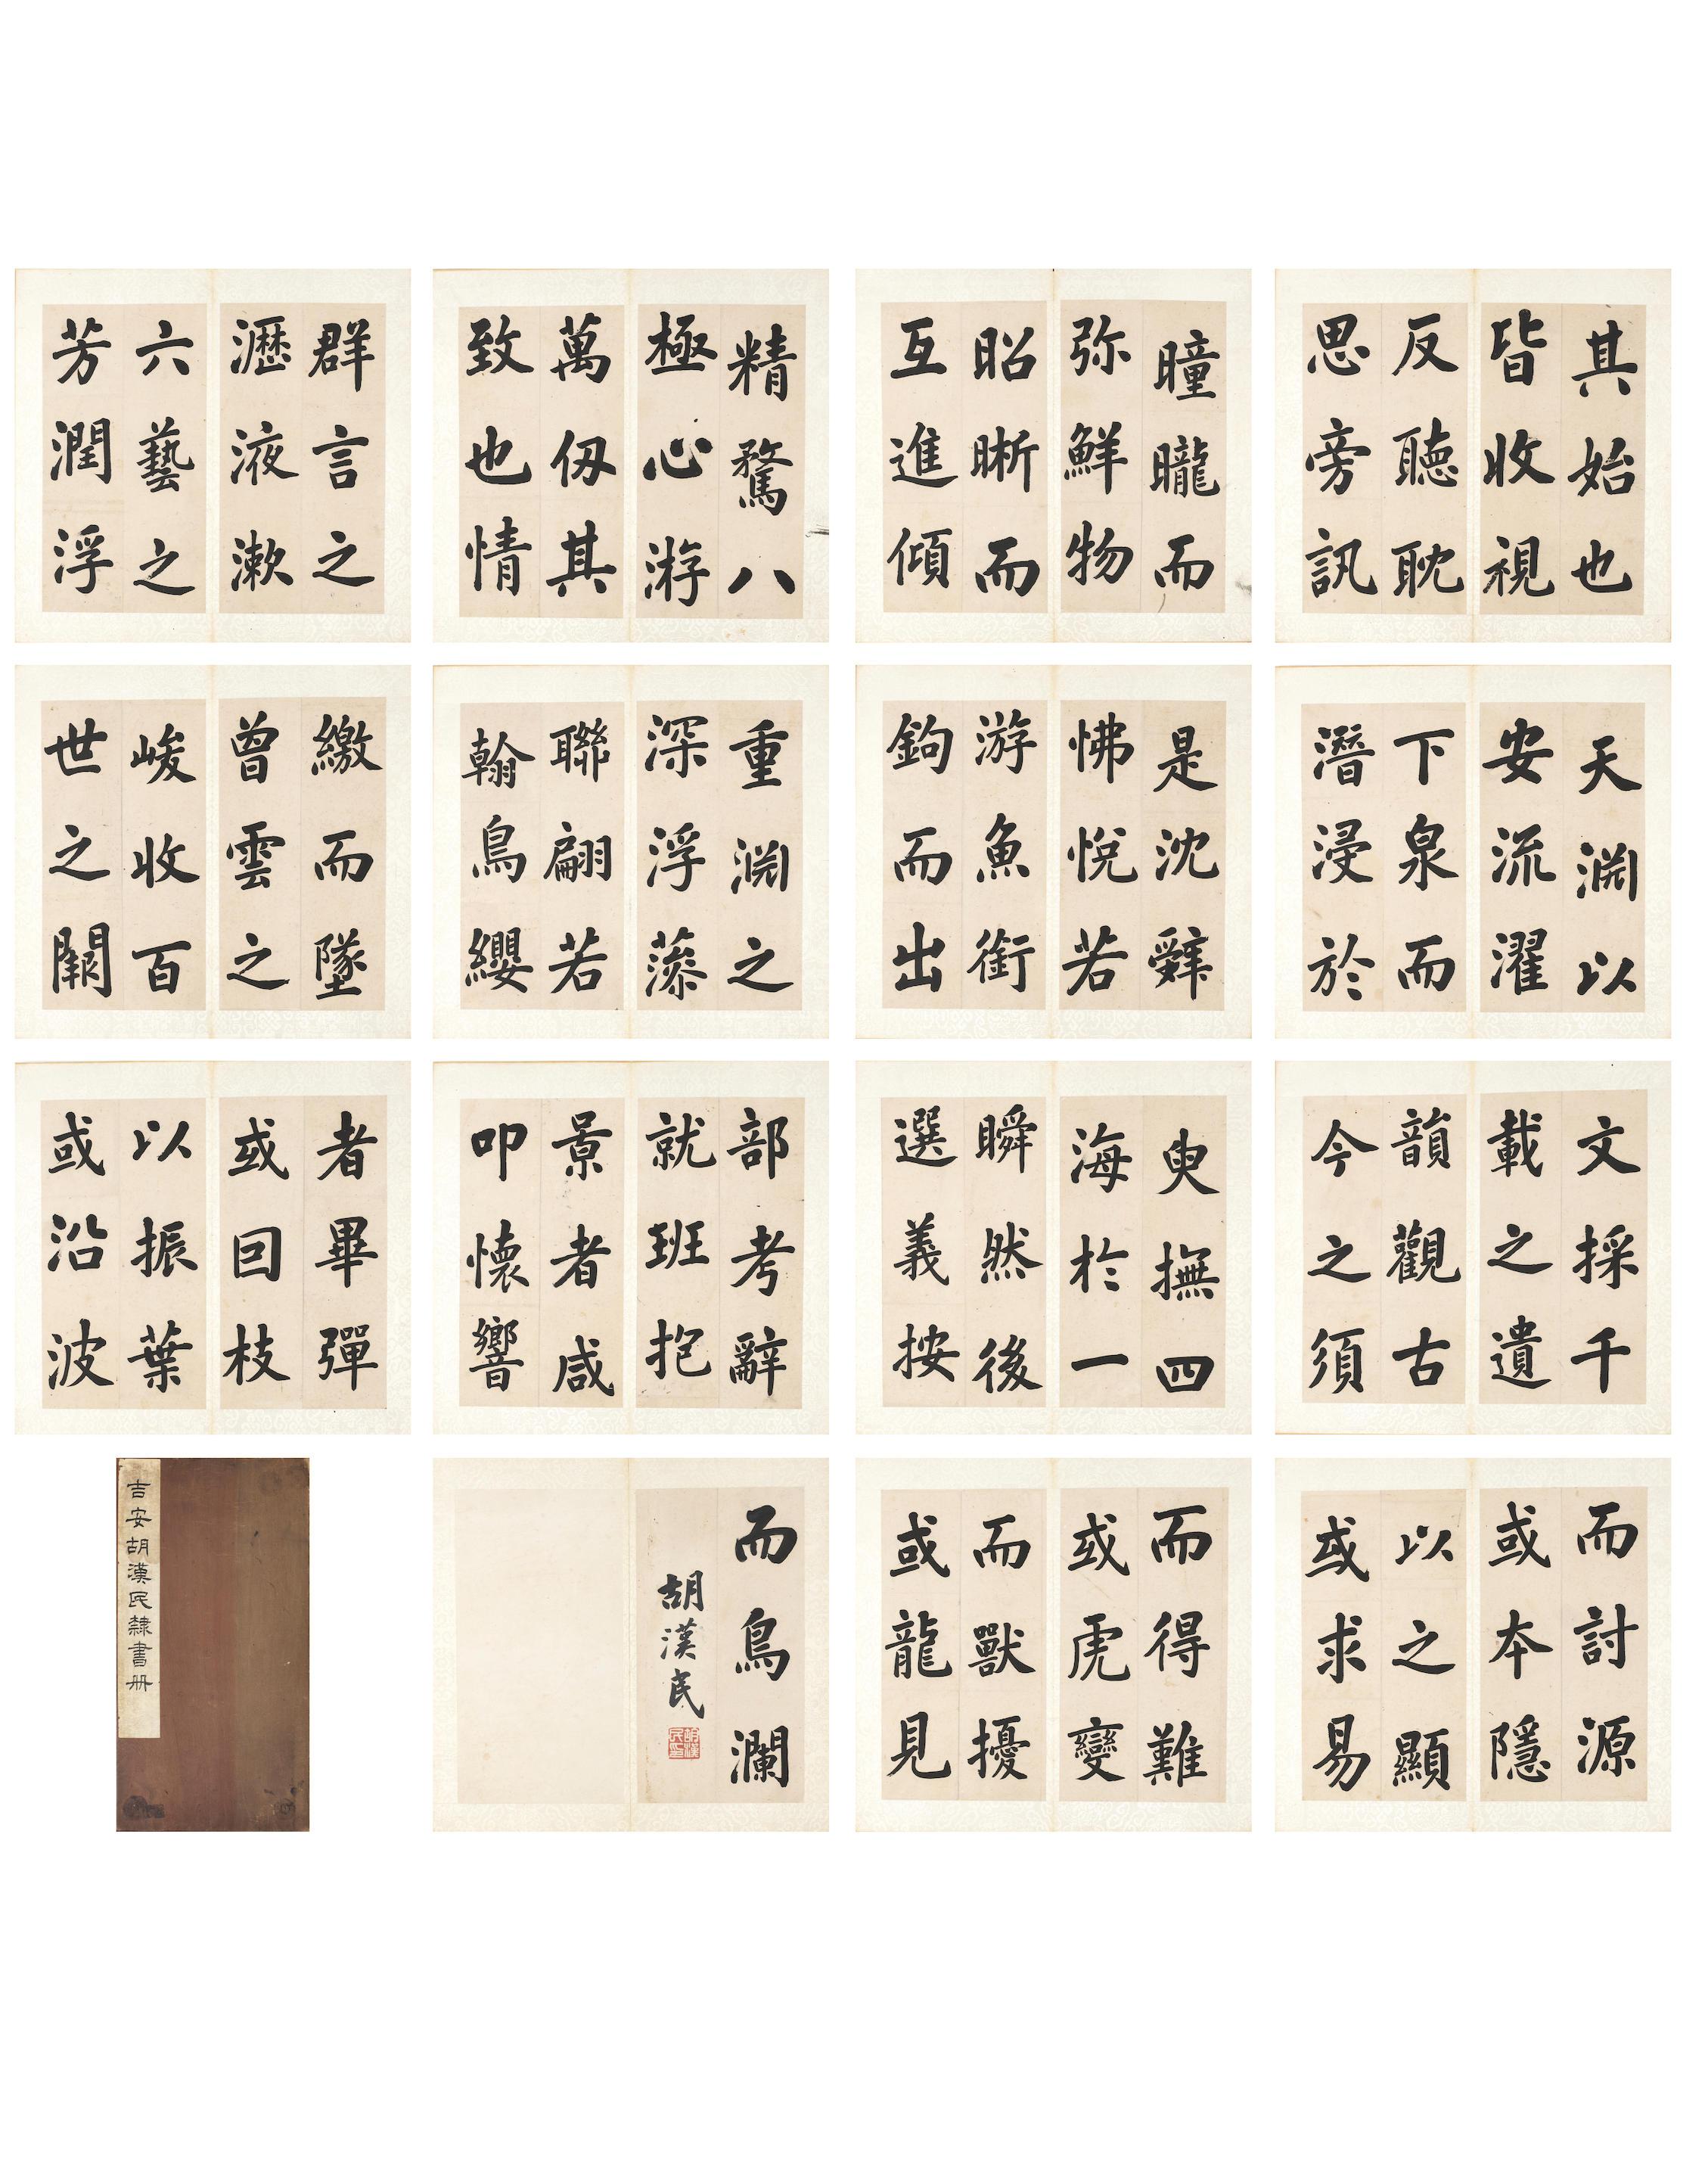 其始也
皆收視
反聽耽
思旁訊
曈曨而
弥鮮物
昭晰而
互進傾
精騖八
極心游
萬仞其
致也情
群言之
瀝液漱
六藝之
芳潤浮
天淵以
安流濯
下泉而
潛浸於
是沈辭
怫悅若
游魚銜
鉤而出
重淵之
深浮藻
聯翩若
翰鳥纓
繳而墜
曾雲之
峻收百
世之闕
文採千
載之遺
韻觀古
今之須
臾撫四
海於一
瞬然後
選義按
部考辭
就班抱
景者咸
叩懷響
者畢彈
或囙枝
以振葉
或沿波
而討源
或本隱
以之顯
或求易
而得難
或虎變
而獸擾
或龍見
而鳥瀾
胡漢民
胡漢民印
吉安胡漢民隸書册